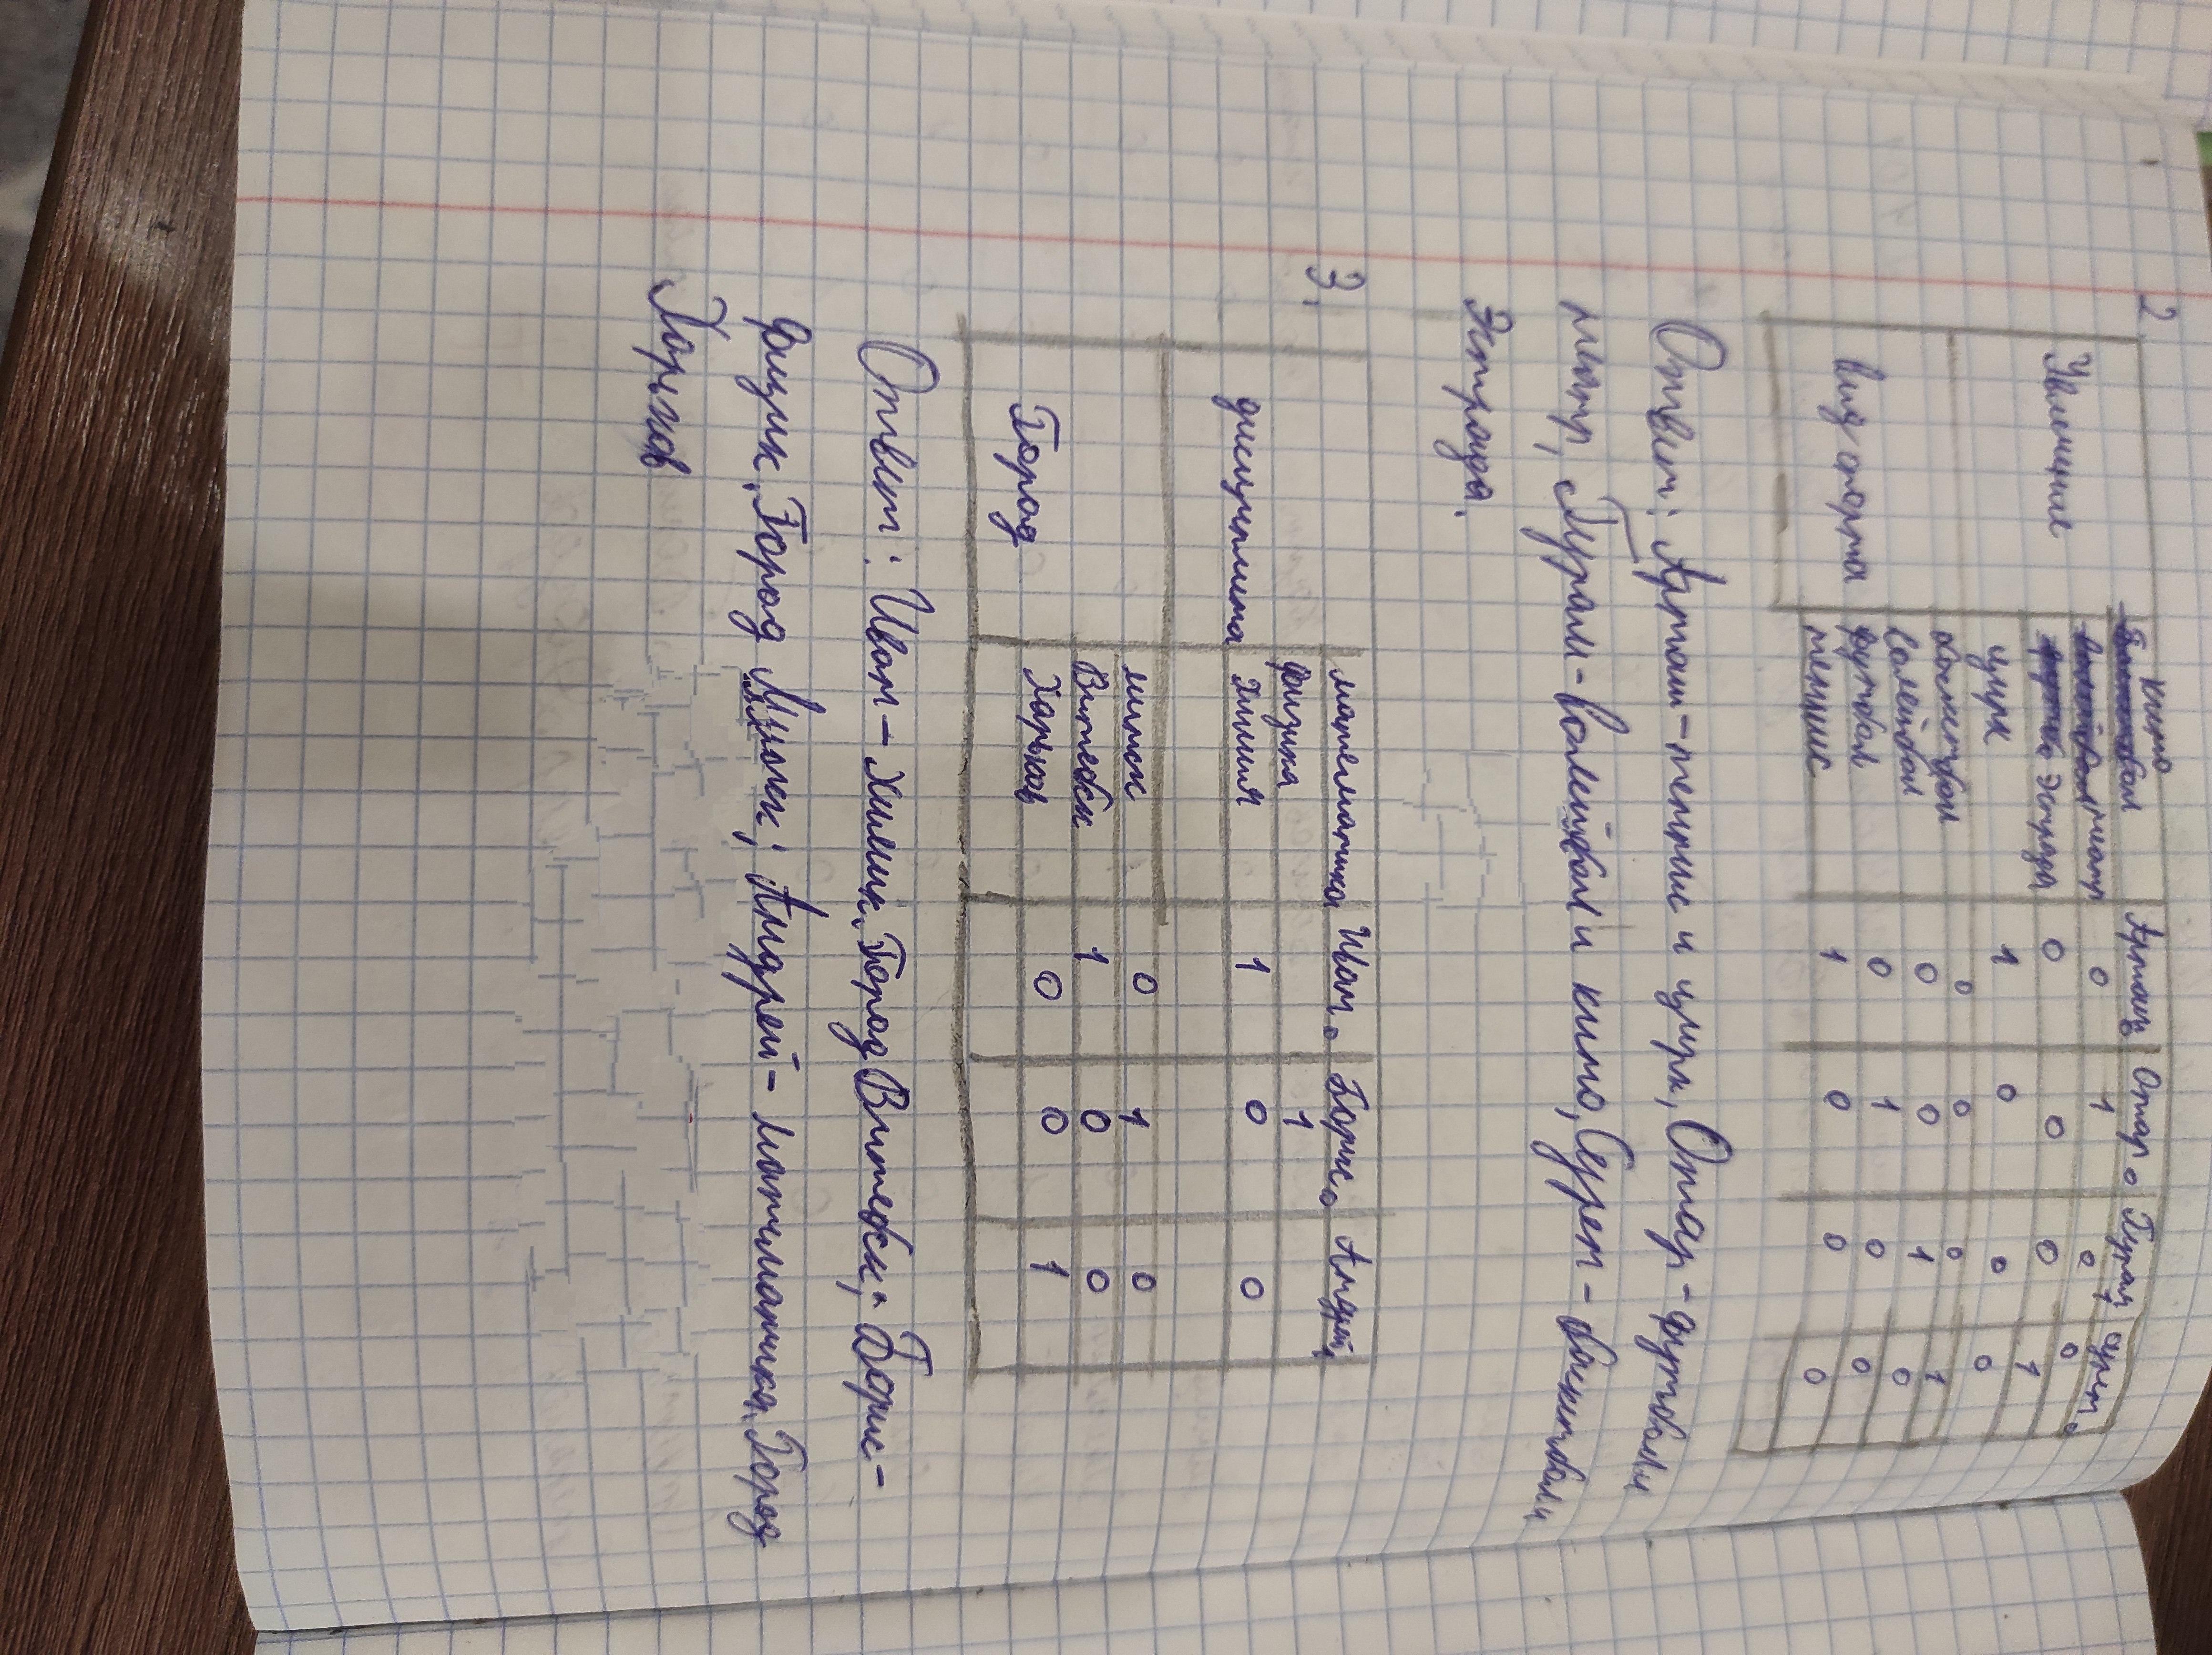 2
кино Арташ Отар. Гурам Сурен.
Увлечение театр 0 1 0 0
эстрада 0 0 0 1
цирк 1 0 0 0
Вид спорта баскетбол 0 0 0 1
волейбол 0 0 1 0
футбол 0 1 0 0
теннис 1 0 0 0
Ответ: Арташ-теннис и цирк, Отар-футбол и
театр, Гурам-волейбол и кино, Сурен-баскетбол и
Эстрада.
3.
математика Иван. Борис. Андрей
физика 1
дисциплина Химия 1 0 0
минск 0 1 0
Город Витебск 1 0 0
Харьков 0 0 1
Ответ: Иван-химик, Город Витебск; Борис-
физик, Город Минск; Андрей-математика, Город
Харьков